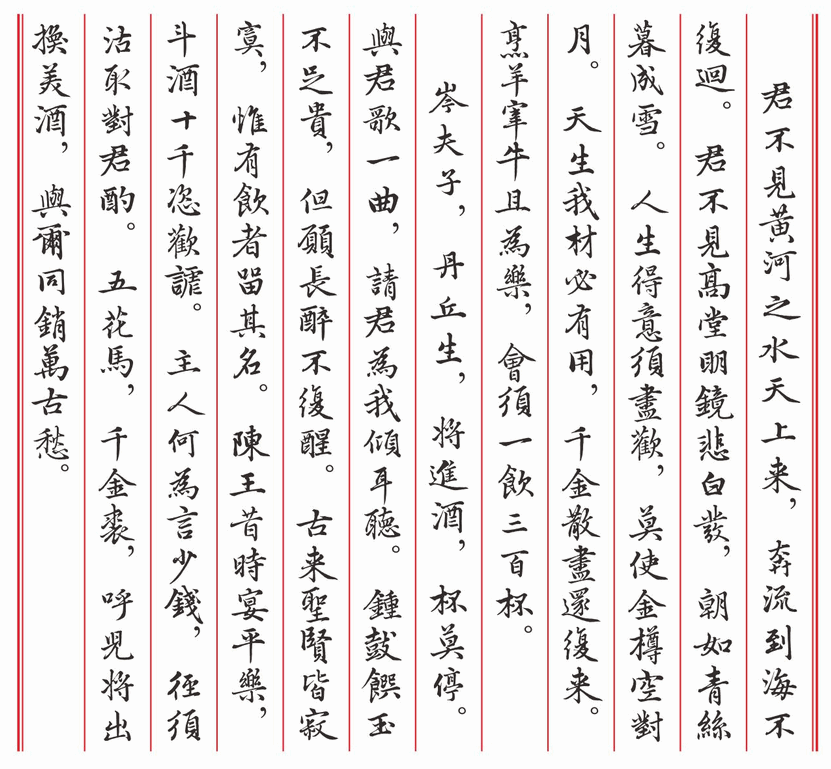 君不見黃河之水天上来，奔流到海不
復迴。君不見高堂明鏡悲白發，朝如青絲
暮成雪。人生得意須盡歡，莫使金樽空對
月。天生我材必有用，千金散盡還復来。
烹羊宰牛且為樂，會須一飲三百杯。
岑夫子，丹丘生，将進酒，杯莫停。
與君歌一曲，請君為我傾耳聽。鍾鼓饌玉
不足貴，但願長醉不復醒。古来聖賢皆寂
寞，惟有飲者留其名。陳王昔時宴平樂，
斗酒十千恣歡謔。主人何為言少錢，徑須
沽取對君酌。五花馬，千金裘，呼児将出
換美酒，與爾同銷萬古愁。